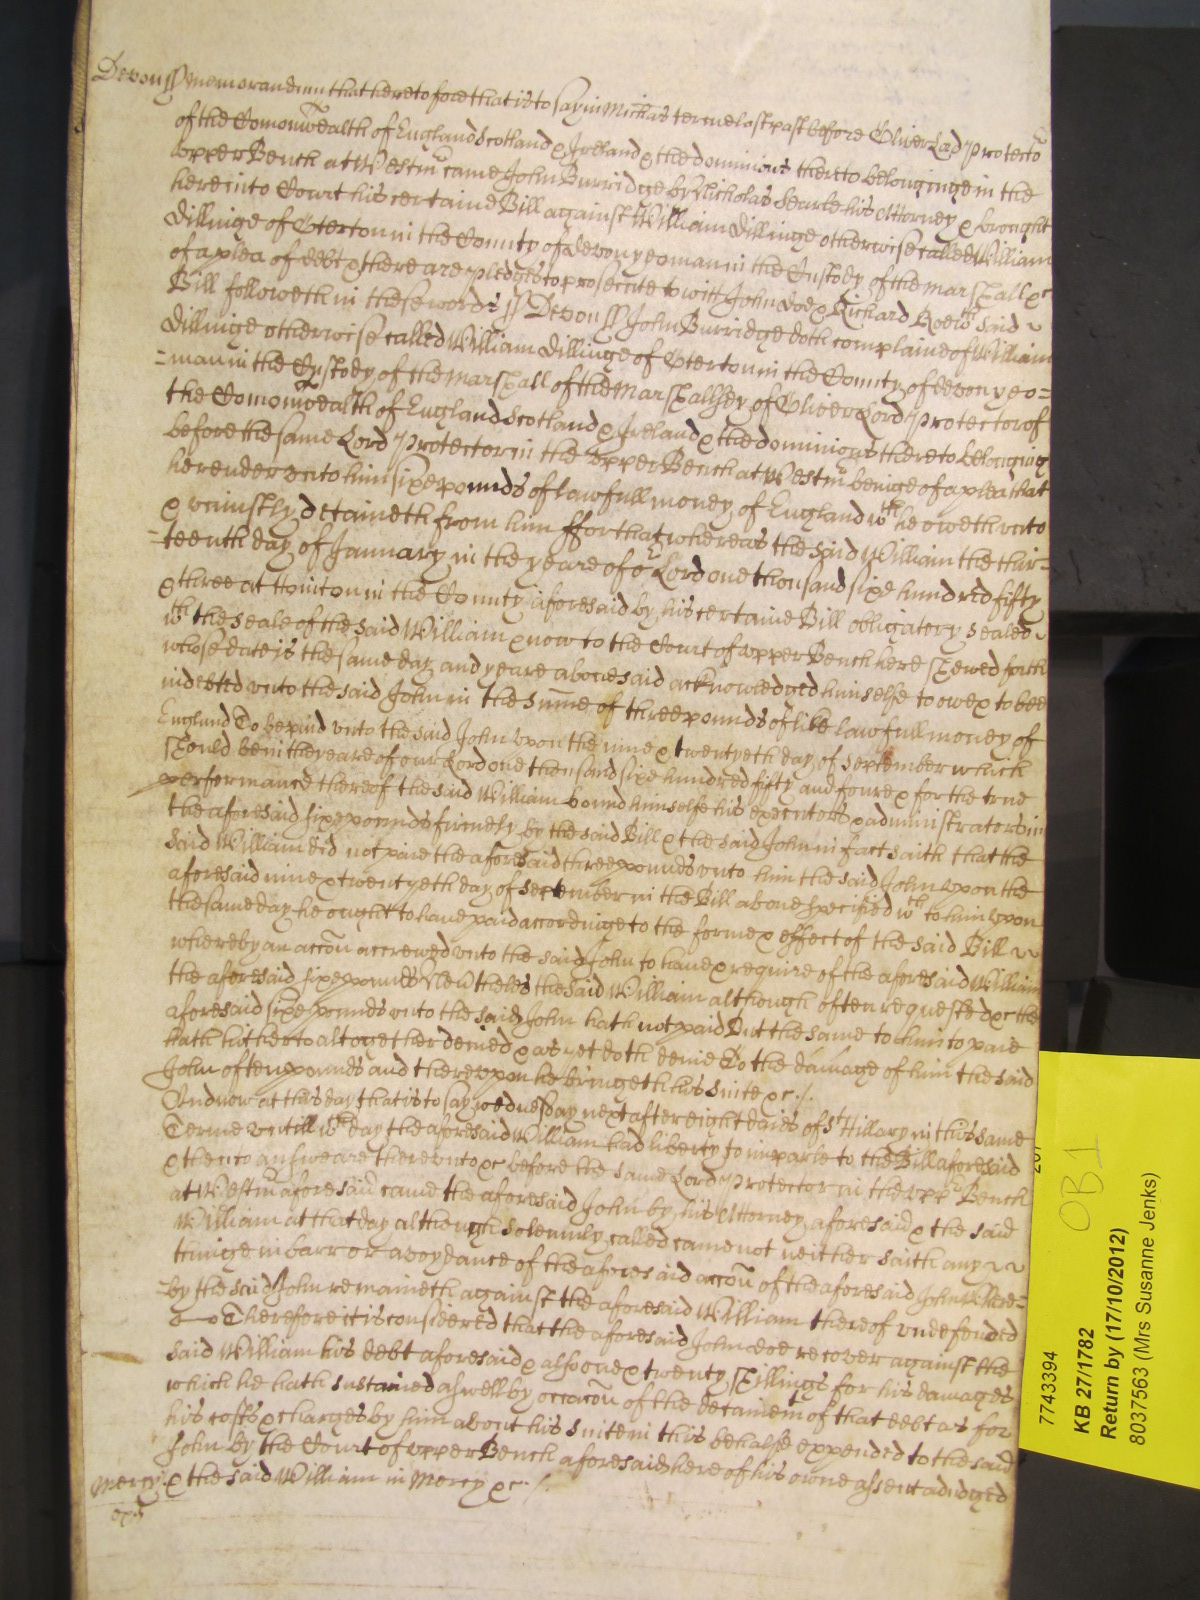 Devon ss Memorandum that heretofore that is to say in Michas terme last past before Oliver Lord Protector
of the Comonwealth of England Scotland & Ireland & the dominions thereto belonginge in the
upper Bench at Westmr came John Burridge by Nicholas Searle his Attorney & brought
here into Court his certaine Bill against William Dillinge otherwise called William
Dillinge of Oterton in the County of Devon yeoman in the Custody of the marshall &c
of a plea of debt & there are pledges to prosecute to witt John Doe & Richard Roe wch said
Bill followeth in these words ss Devon ss John Burridge doth complaine of William
Dillinge otherwise called William Dillinge of Oterton in the County of Devon yeo=
=man in the Custody of the marshall of the Marshallsey of Oliver Lord Protector of
the Comonwealth of England Scotland & Ireland & the dominions thereto belonging
before the same Lord Protector in the upper Bench at Westmr beinge of a plea that
he render unto him sixe pounds of lawfull money of England wch he oweth unto
& uniustly detaineth from him ffor that whereas the said William the thir=
=teenth day of January in the yeare of or Lord one thousand sixe hundred fifty
& three at Honiton in the County aforesaid by his certaine Bill obligatery sealed
wth the seale of the said William & now to the Court of upper Bench here shewed forth
whose date is the same day and yeare abovesaid acknowledged himselfe to owe & to bee
indebted unto the said John in the summe of three pounds of like lawfull money of
England To be paid unto the said John upon the nine & twentyeth day of September which
should be in the yeare of our Lord one thousand sixe hundred fifty and foure & for the true
performance thereof the said William bound himselfe his executors & administrators in
the aforesaid sixe pounds firmely by the said Bill & the said John in fact saith that the
said William did not paie the aforesaid three pounds unto him the said John upon the
aforesaid nine & twentyeth day of September in the Bill above specified wch to him upon
the same day he ought to have paid accordinge to the forme & effect of the said Bill
whereby an accon accrewed unto the said John to have & require of the aforesaid William
the aforesaid sixe pounds Nevtheles the said William although often requested &c the
aforesaid sixe pounds unto the said John hath not paid But the same to him to paie
hath hitherto altogether denied & as yet doth denie To the damage of him the said
John of ten pounds and thereupon he bringeth his suite &c ./.
And now at this day that is to say wednesday next after eight daies of St Hillary in this same
Terme untill wch day the aforesaid William had liberty to imparle to the Bill aforesaid
& then to answeare thereunto &c before the same Lord Protector in the uppr Bench
at Westmr aforesaid came the aforesaid John by his Attorney aforesaid & the said
William at that day although solemnly called came not neither saith any
thinge in barr or avoydance of the aforesaid accon of the aforesaid John
by the said John remaineth against the aforesaid William thereof undefended
Therefore it is considered that the aforesaid John doe recover against the
said William his debt aforesaid & alsoe one & twenty shillings for his damages
which he hath sustained aswell by occacon of the detaineinge of that debt as for
his costs & charges by him about his suite in this behalfe expended to the said
John by the Court of upper Bench aforesaid here of his owne assent adiudged
Mercy & the said William in Mercy &c ./.
7743394
OB1
KB 27/1782
Return by (17/10/2012)
8037563 (Mrs Susanne Jenks)